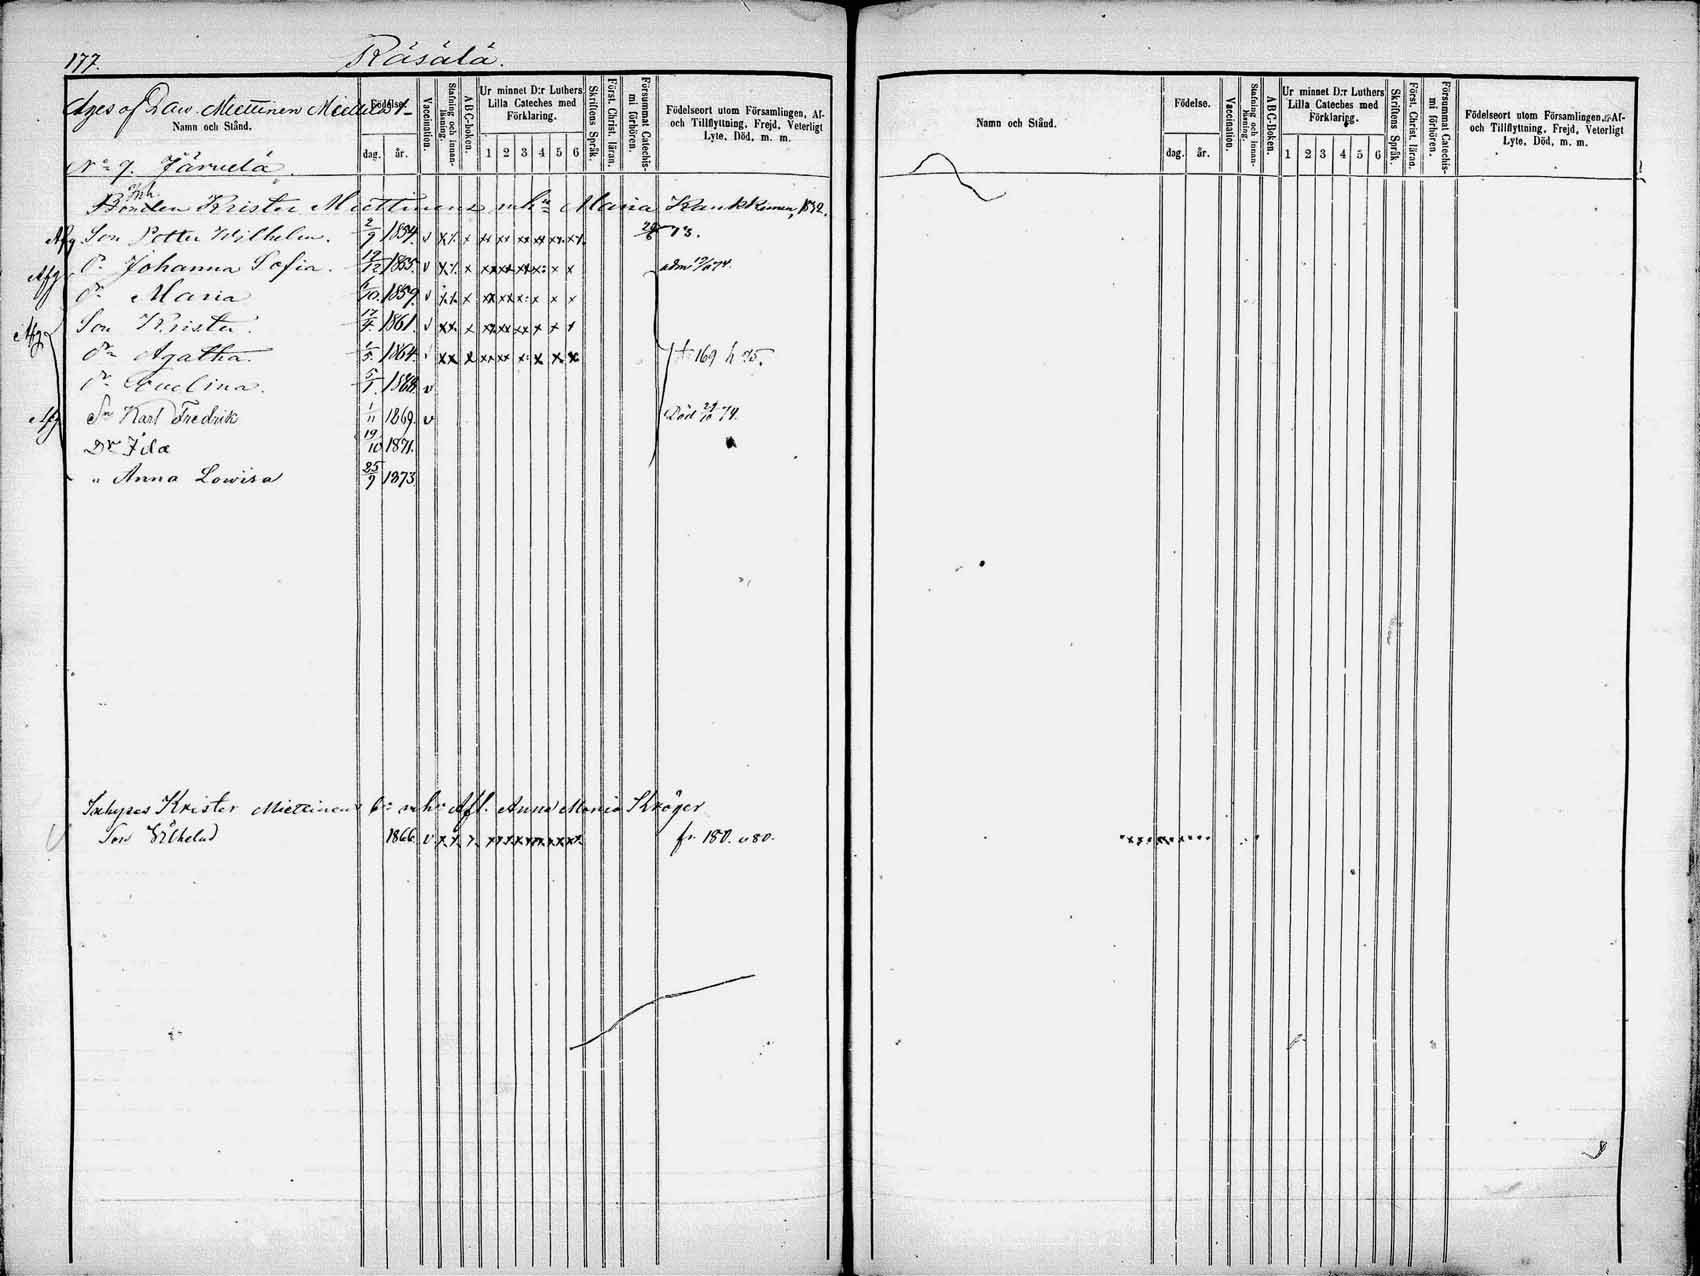 177. Räsälä.
Äges af Dav. Miettinen
Namn och Stånd.
Födelse.
dag. år.
Vaccination.
Stafning och innan-läsning.
ABC-boken.
Ur minnet D:r Luthers Lilla Cateches med Förklaring.
1 2 3 4 5 6
Skriftens Språk.
Först. Christ. läran.
Försummat Catechis-mi förhören.
Födelseort utom Församlingen, Af- och Tillflyttning, Frejd, Veterligt Lyte, Död, m. m.
No 7. Järvelä.
Bonden Krister Miettinens mhu Maria Kaukkonen, 1832.
Afg Son Petter Wilhelm. 2/9 1854. v x x x xx xx xx xx xx xx 73.
Afg Dr Johanna Sofia. 12/12 1855. v x x x xx xx xx x x x
Dr Maria 6/10 1859. v x x x xx xx x x x x
Afg Son Krister. 17/4 1861. v x x x xx xx xx x x x
Dr Agatha. 1/5 1864. v x x x xx xx x x x x 169 h 75.
Dr Evelina. 5/1 1868. v
Afg Sn Karl Fredrik 1/11 1869. v Död 29/10 74.
Dr Ida 19/10 1871.
" Anna Lowisa 25/9 1873.
Inhyses Krister Miettinens mhu Afl. Anna Maria Kröger
Son Wilhelm 1866 v x x x xx xx xx xx xx xx fr. 180. v 80.
Namn och Stånd.
Födelse.
dag. år.
Vaccination.
Stafning och innan-läsning.
ABC-Boken.
Ur minnet D:r Luthers Lilla Cateches med Förklaring.
1 2 3 4 5 6
Skriftens Språk.
Först. Christ. läran.
Försummat Catechis-mi förhören.
Födelseort utom Församlingen, Af- och Tillflyttning, Frejd, Veterligt Lyte, Död, m. m.